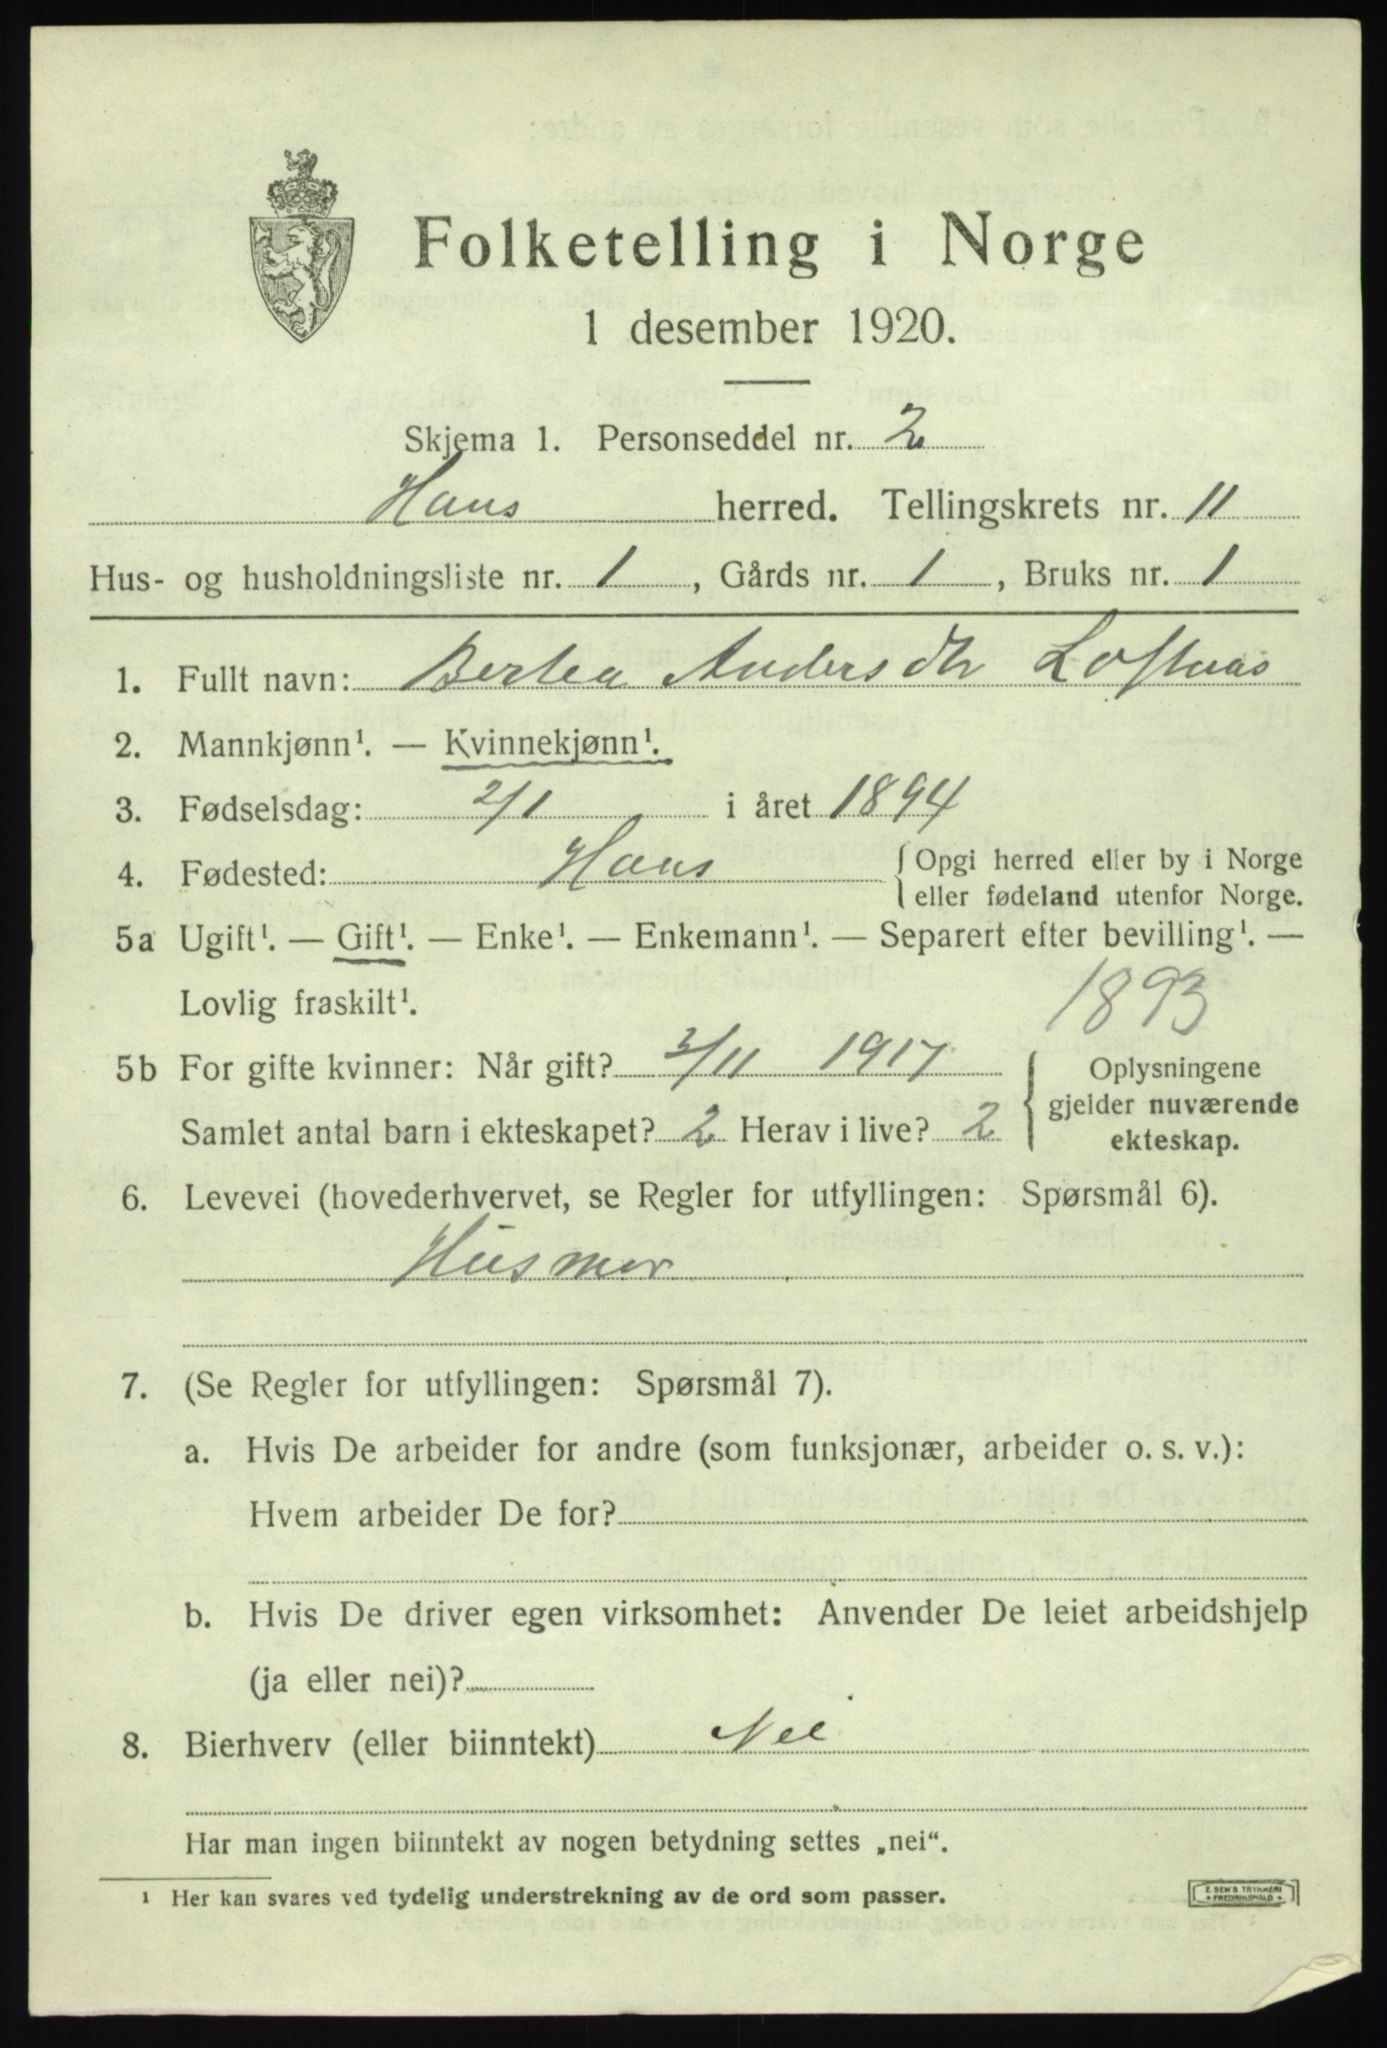 Folketelling i Norge
1 desember 1920.
Skjema 1. Personseddel nr. 2
Haus herred. Tellingskrets nr. 11
Hus- og husholdningsliste nr. 1, Gårds nr. 1, Bruks nr. 1
1. Fullt navn: Bertea Anders dtr Loftaas
2. Mannkjønn¹. — Kvinnekjønn¹.
3. Fødselsdag: 2/1 i året 1894
4. Fødested: Haus { Opgi herred eller by i Norge
eller fødeland utenfor Norge.
5a Ugift¹. — Gift¹. — Enke¹. — Enkemann¹. — Separert efter bevilling¹. —
Lovlig fraskilt¹. 1893
5b For gifte kvinner: Når gift? 2/11 1917 { Oplysningene
gjelder nuværende
Samlet antal barn i ekteskapet? 2 Herav i live? 2 ekteskap.
6. Levevei (hovederhvervet, se Regler for utfyllingen: Spørsmål 6).
Husmor
7. (Se Regler for utfyllingen: Spørsmål 7).
a. Hvis De arbeider for andre (som funksjonær, arbeider o. s. v.):
Hvem arbeider De for?
b. Hvis De driver egen virksomhet: Anvender De leiet arbeidshjelp
(ja eller nei)?
8. Bierhverv (eller biinntekt) Nei
Har man ingen biinntekt av nogen betydning settes „nei“.
¹ Her kan svares ved tydelig understrekning av de ord som passer.
E. SEM'S TRYKKERI
FREDRIKSHALD